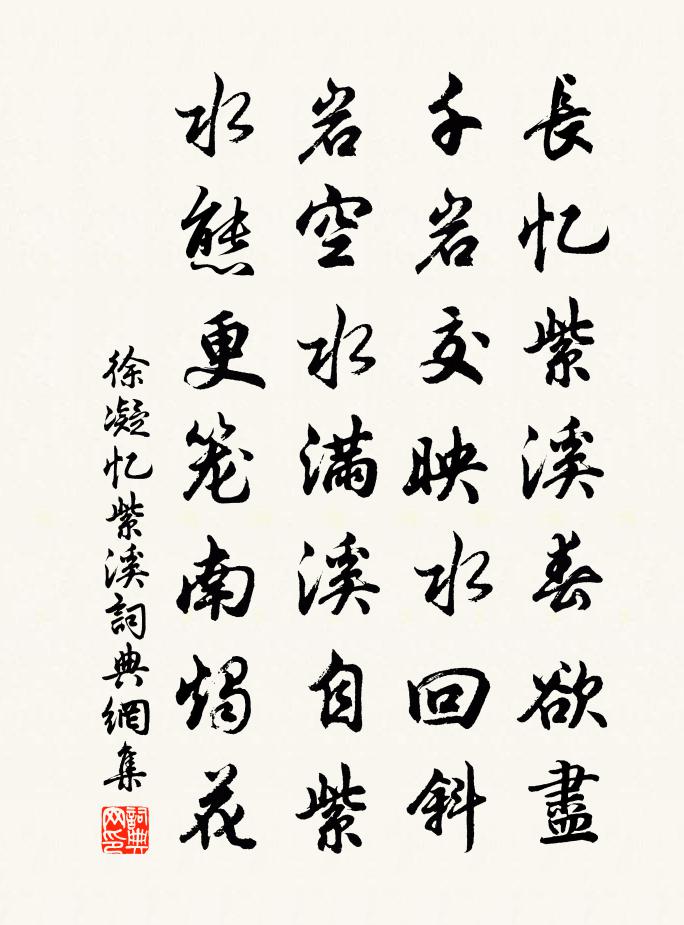 長忆紫溪春欲盡
千岩交映水回斜
岩空水滿溪自紫
水態更笼南燭花
徐凝忆紫溪詞典網集
詞典网印